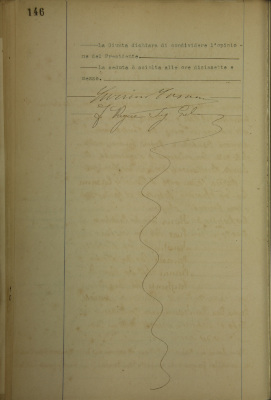 146
La Giunta dichiara di condividere l'opinio
ne del Presidente.
La seduta è sciolta alle ore diciasette e
mezza.